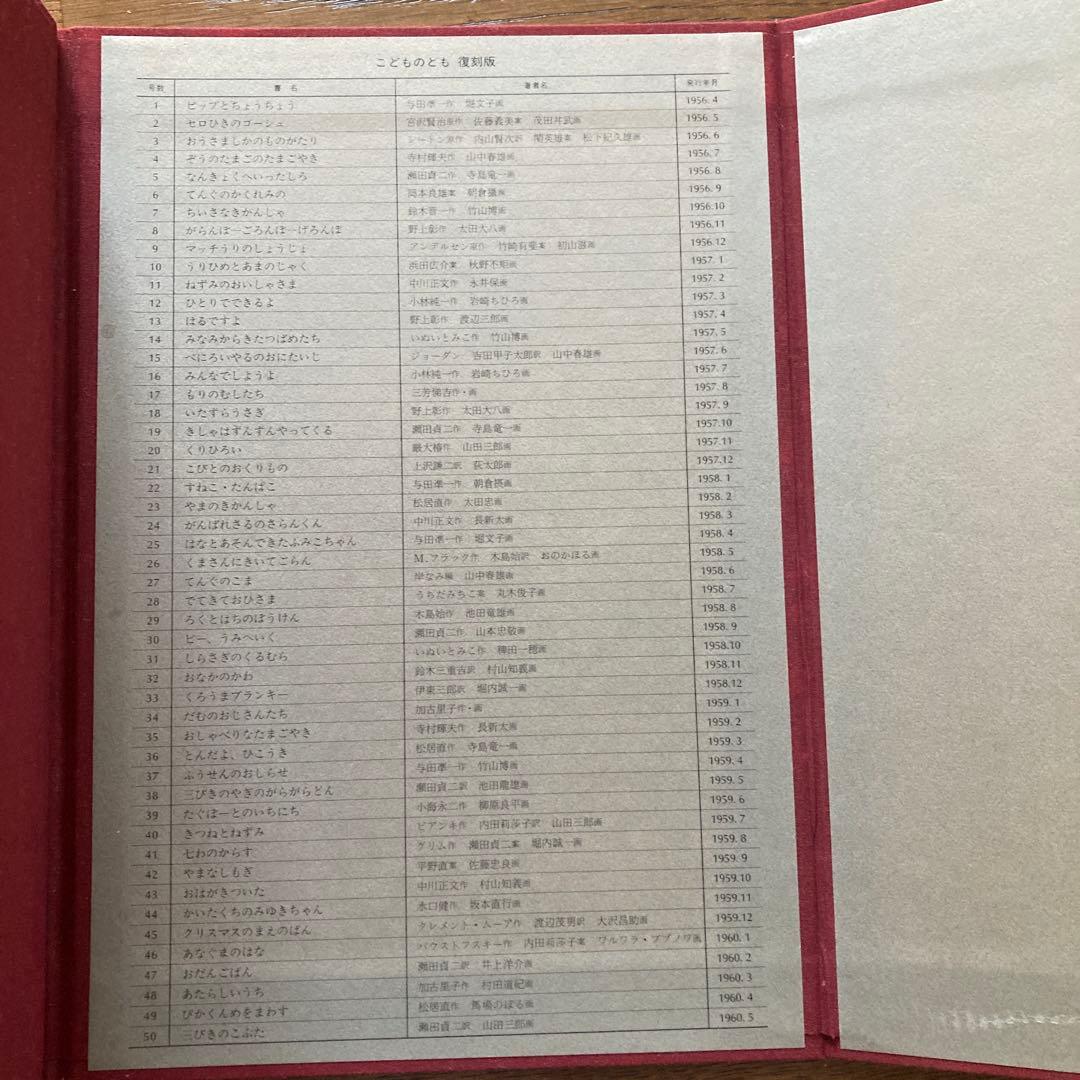 こどものとも 復刻版
号数 書名 著者名 発行年月
1 ピップとちょうちょう 与田凖一作 堀文子画 1956. 4
2 セロひきのゴーシュ 宮沢賢治原作 佐藤義美案 茂田井武画 1956. 5
3 おうさましかのものがたり シートン原作 内山賢次訳 関英雄案 松下紀久雄画 1956. 6
4 ぞうのたまごのたまごやき 寺村輝夫作 山中春雄画 1956. 7
5 なんきょくへいったしろ 瀬田貞二作 寺島竜一画 1956. 8
6 てんぐのかくれみの 岡本良雄案 朝倉摂画 1956. 9
7 ちいさなきかんしゃ 鈴木晋一作 竹山博画 1956.10
8 がらんぼーごろんぼーげろんぼ 野上彰作 太田大八画 1956.11
9 マッチうりのしょうじょ アンデルセン原作 竹崎有斐案 初山滋画 1956.12
10 うりひめとあまのじゃく 浜田広介案 秋野不矩画 1957. 1
11 ねずみのおいしゃさま 中川正文作 永井保画 1957. 2
12 ひとりでできるよ 小林純一作 岩崎ちひろ画 1957. 3
13 はるですよ 野上彰作 渡辺三郎画 1957. 4
14 みなみからきたつばめたち いぬいとみこ作 竹山博画 1957. 5
15 べにろいやるのおにたいじ ジョーダン 吉田甲子太郎訳 山中春雄画 1957. 6
16 みんなでしようよ 小林純一作 岩崎ちひろ画 1957. 7
17 もりのむしたち 三芳悌吉作・画 1957. 8
18 いたずらうさぎ 野上彰作 太田大八画 1957. 9
19 きしゃはずんずんやってくる 瀬田貞二作 寺島竜一画 1957.10
20 くりひろい 厳大椿作 山田三郎画 1957.11
21 こびとのおくりもの 上沢謙二訳 荻太郎画 1957.12
22 すねこ・たんぱこ 与田凖一作 朝倉摂画 1958. 1
23 やまのきかんしゃ 松居直作 太田忠画 1958. 2
24 がんばれさるのさらんくん 中川正文作 長新太画 1958. 3
25 はなとあそんできたふみこちゃん 与田凖一作 堀文子画 1958. 4
26 くまさんにきいてごらん M.フラック作 木島始訳 おのかほる画 1958. 5
27 てんぐのこま 岸なみ編 山中春雄画 1958. 6
28 でてきておひさま うちだみちこ案 丸木俊子画 1958. 7
29 ろくとはちのぼうけん 木島始作 池田竜雄画 1958. 8
30 ピー、うみへいく 瀬田貞二作 山本忠敬画 1958. 9
31 しらさぎのくるむら いぬいとみこ作 稗田一穂画 1958.10
32 おなかのかわ 鈴木三重吉訳 村山知義画 1958.11
33 くろうまブランキー 伊東三郎訳 堀内誠一画 1958.12
34 だむのおじさんたち 加古里子作・画 1959. 1
35 おしゃべりなたまごやき 寺村輝夫作 長新太画 1959. 2
36 とんだよ、ひこうき 松居直作 寺島竜一画 1959. 3
37 ふうせんのおしらせ 与田凖一作 竹山博画 1959. 4
38 三びきのやぎのがらがらどん 瀬田貞二訳 池田龍雄画 1959. 5
39 たぐぼーとのいちにち 小海永二作 柳原良平画 1959. 6
40 きつねとねずみ ビアンキ作 内田莉莎子訳 山田三郎画 1959. 7
41 七わのからす グリム作 瀬田貞二案 堀内誠一画 1959. 8
42 やまなしもぎ 平野直案 佐藤忠良画 1959. 9
43 おはがきついた 中川正文作 村山知義画 1959.10
44 かいたくちのみゆきちゃん 水口健作 坂本直行画 1959.11
45 クリスマスのまえのばん クレメント・ムーア作 渡辺茂男訳 大沢昌助画 1959.12
46 あなぐまのはな パウストフスキー作 内田莉莎子案 ワルワラ・ブブノワ画 1960. 1
47 おだんごぱん 瀬田貞二訳 井上洋介画 1960. 2
48 あたらしいうち 加古里子作 村田道紀画 1960. 3
49 ぴかくんめをまわす 松居直作 馬場のぼる画 1960. 4
50 三びきのこぶた 瀬田貞二訳 山田三郎画 1960. 5